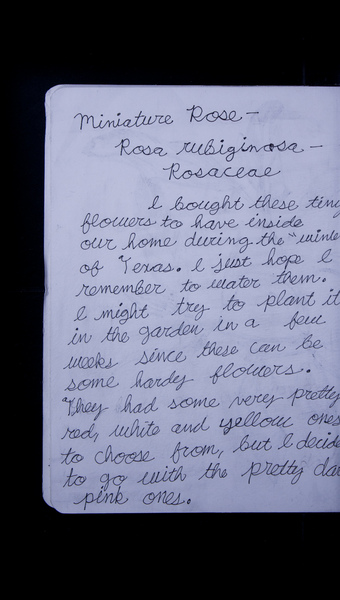 Miniature Rose-
Rosa rubiginosa-
Rosaceae
I bought these tiny
flowers to have inside
our home during the "winte
of Texas. I just hope I
remember to water them.
I might try to plant it
in the garden in a few
weeks since these can be
some hardy flowers.
They had some very pretty
red, white and yellow ones
to choose from, but I decide
to go with the pretty da
pink ones.